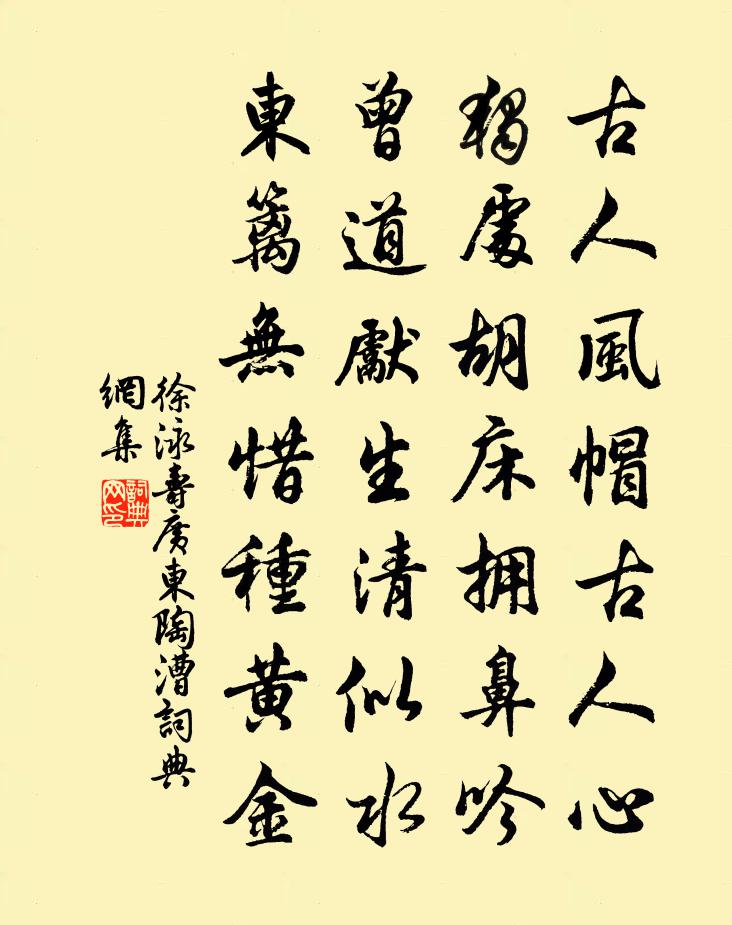 古人風帽古人心
獨處胡床拥鼻吟
曾道獻生清似水
東籬無惜種黃金
徐泳壽廣東陶漕詞典
網集
詞典
网印